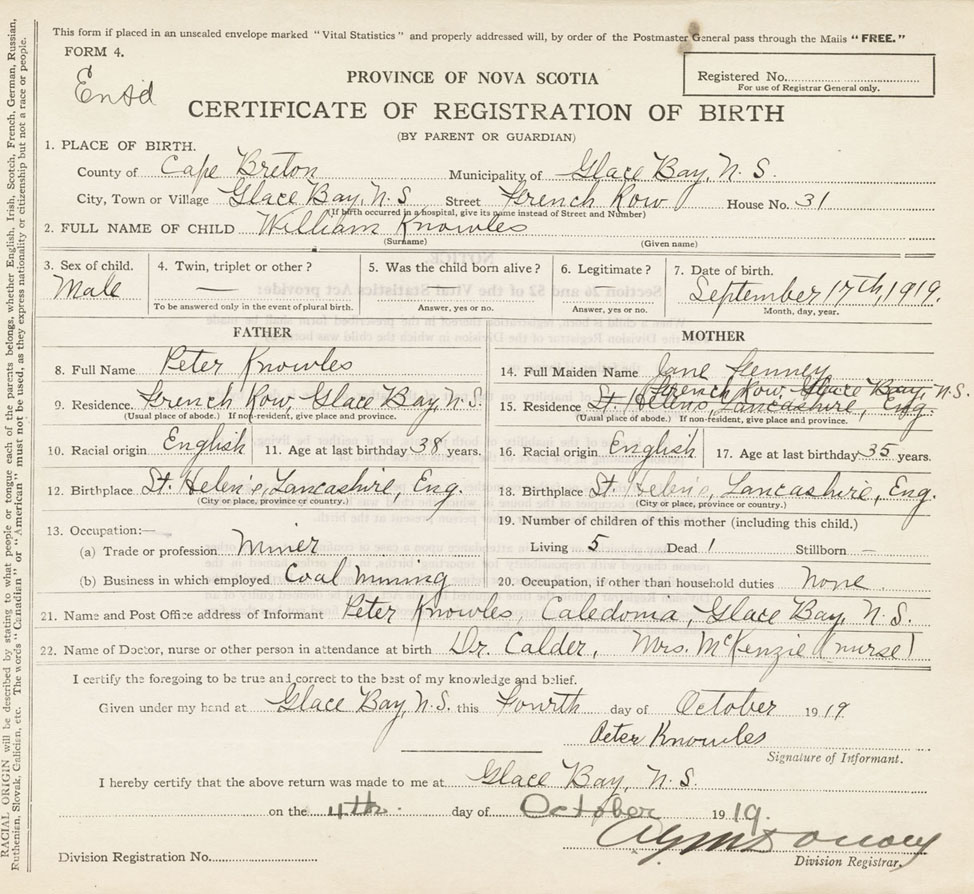 This form if placed in an unsealed envelope marked "Vital Statistics" and properly addressed will, by order of the Postmaster General pass through the Mails "FREE."
FORM 4.
PROVINCE OF NOVA SCOTIA
Registered No.
For use of Registrar General only.
CERTIFICATE OF REGISTRATION OF BIRTH
(BY PARENT OR GUARDIAN)
1. PLACE OF BIRTH.
County of Cape Breton Municipality of Glace Bay, N. S.
City, Town or Village Glace Bay, N. S Street French Row House No. 31
(If birth occurred in a hospital, give its name instead of Street and Number)
2. FULL NAME OF CHILD William Knowles
(Surname) (Given name)
3. Sex of child. 4. Twin, triplet or other? 5. Was the child born alive? 6. Legitimate? 7. Date of birth.
Male — — — September 17th, 1919.
To be answered only in the event of plural birth. Answer, yes or no. Answer, yes or no. Month, day, year.
FATHER MOTHER
8. Full Name Peter Knowles 14. Full Maiden Name Jane
French Row, Glace Bay, N.S.
9. Residence French Row, Glace Bay, N.S. 15. Residence St. Helen's, Lancashire, Eng.
(Usual place of abode.) If non-resident, give place and province. (Usual place of abode.) If non-resident, give place and province.
10. Racial origin English 11. Age at last birthday 38 years. 16. Racial origin English 17. Age at last birthday 35 years.
12. Birthplace St. Helen's, Lancashire, Eng. 18. Birthplace St. Helen's, Lancashire, Eng.
(City or place, province or country.) (City or place, province or country.)
13. Occupation:— 19. Number of children of this mother (including this child.)
(a) Trade or profession Miner Living 5 Dead 1 Stillborn —
(b) Business in which employed Coal Mining 20. Occupation, if other than household duties None
21. Name and Post Office address of Informant Peter Knowles, Caledonia, Glace Bay, N. S.
22. Name of Doctor, nurse or other person in attendance at birth Dr. Calder, Mrs. McKenzie (nurse)
I certify the foregoing to be true and correct to the best of my knowledge and belief.
Given under my hand at Glace Bay, N.S. this Fourth day of October 1919
Peter Knowles
Signature of Informant.
I hereby certify that the above return was made to me at Glace Bay, N. S.
on the 4th. day of October 1919.
Division Registration No. Division Registrar.
RACIAL ORIGIN will be described by stating to what people or tongue each of the parents belongs, whether English, Irish, Scotch, French, German, Russian,
Ruthenian, Slovak, Galician, etc. The words "Canadian" or "American" must not be used, as they express nationality or citizenship but not a race or people.